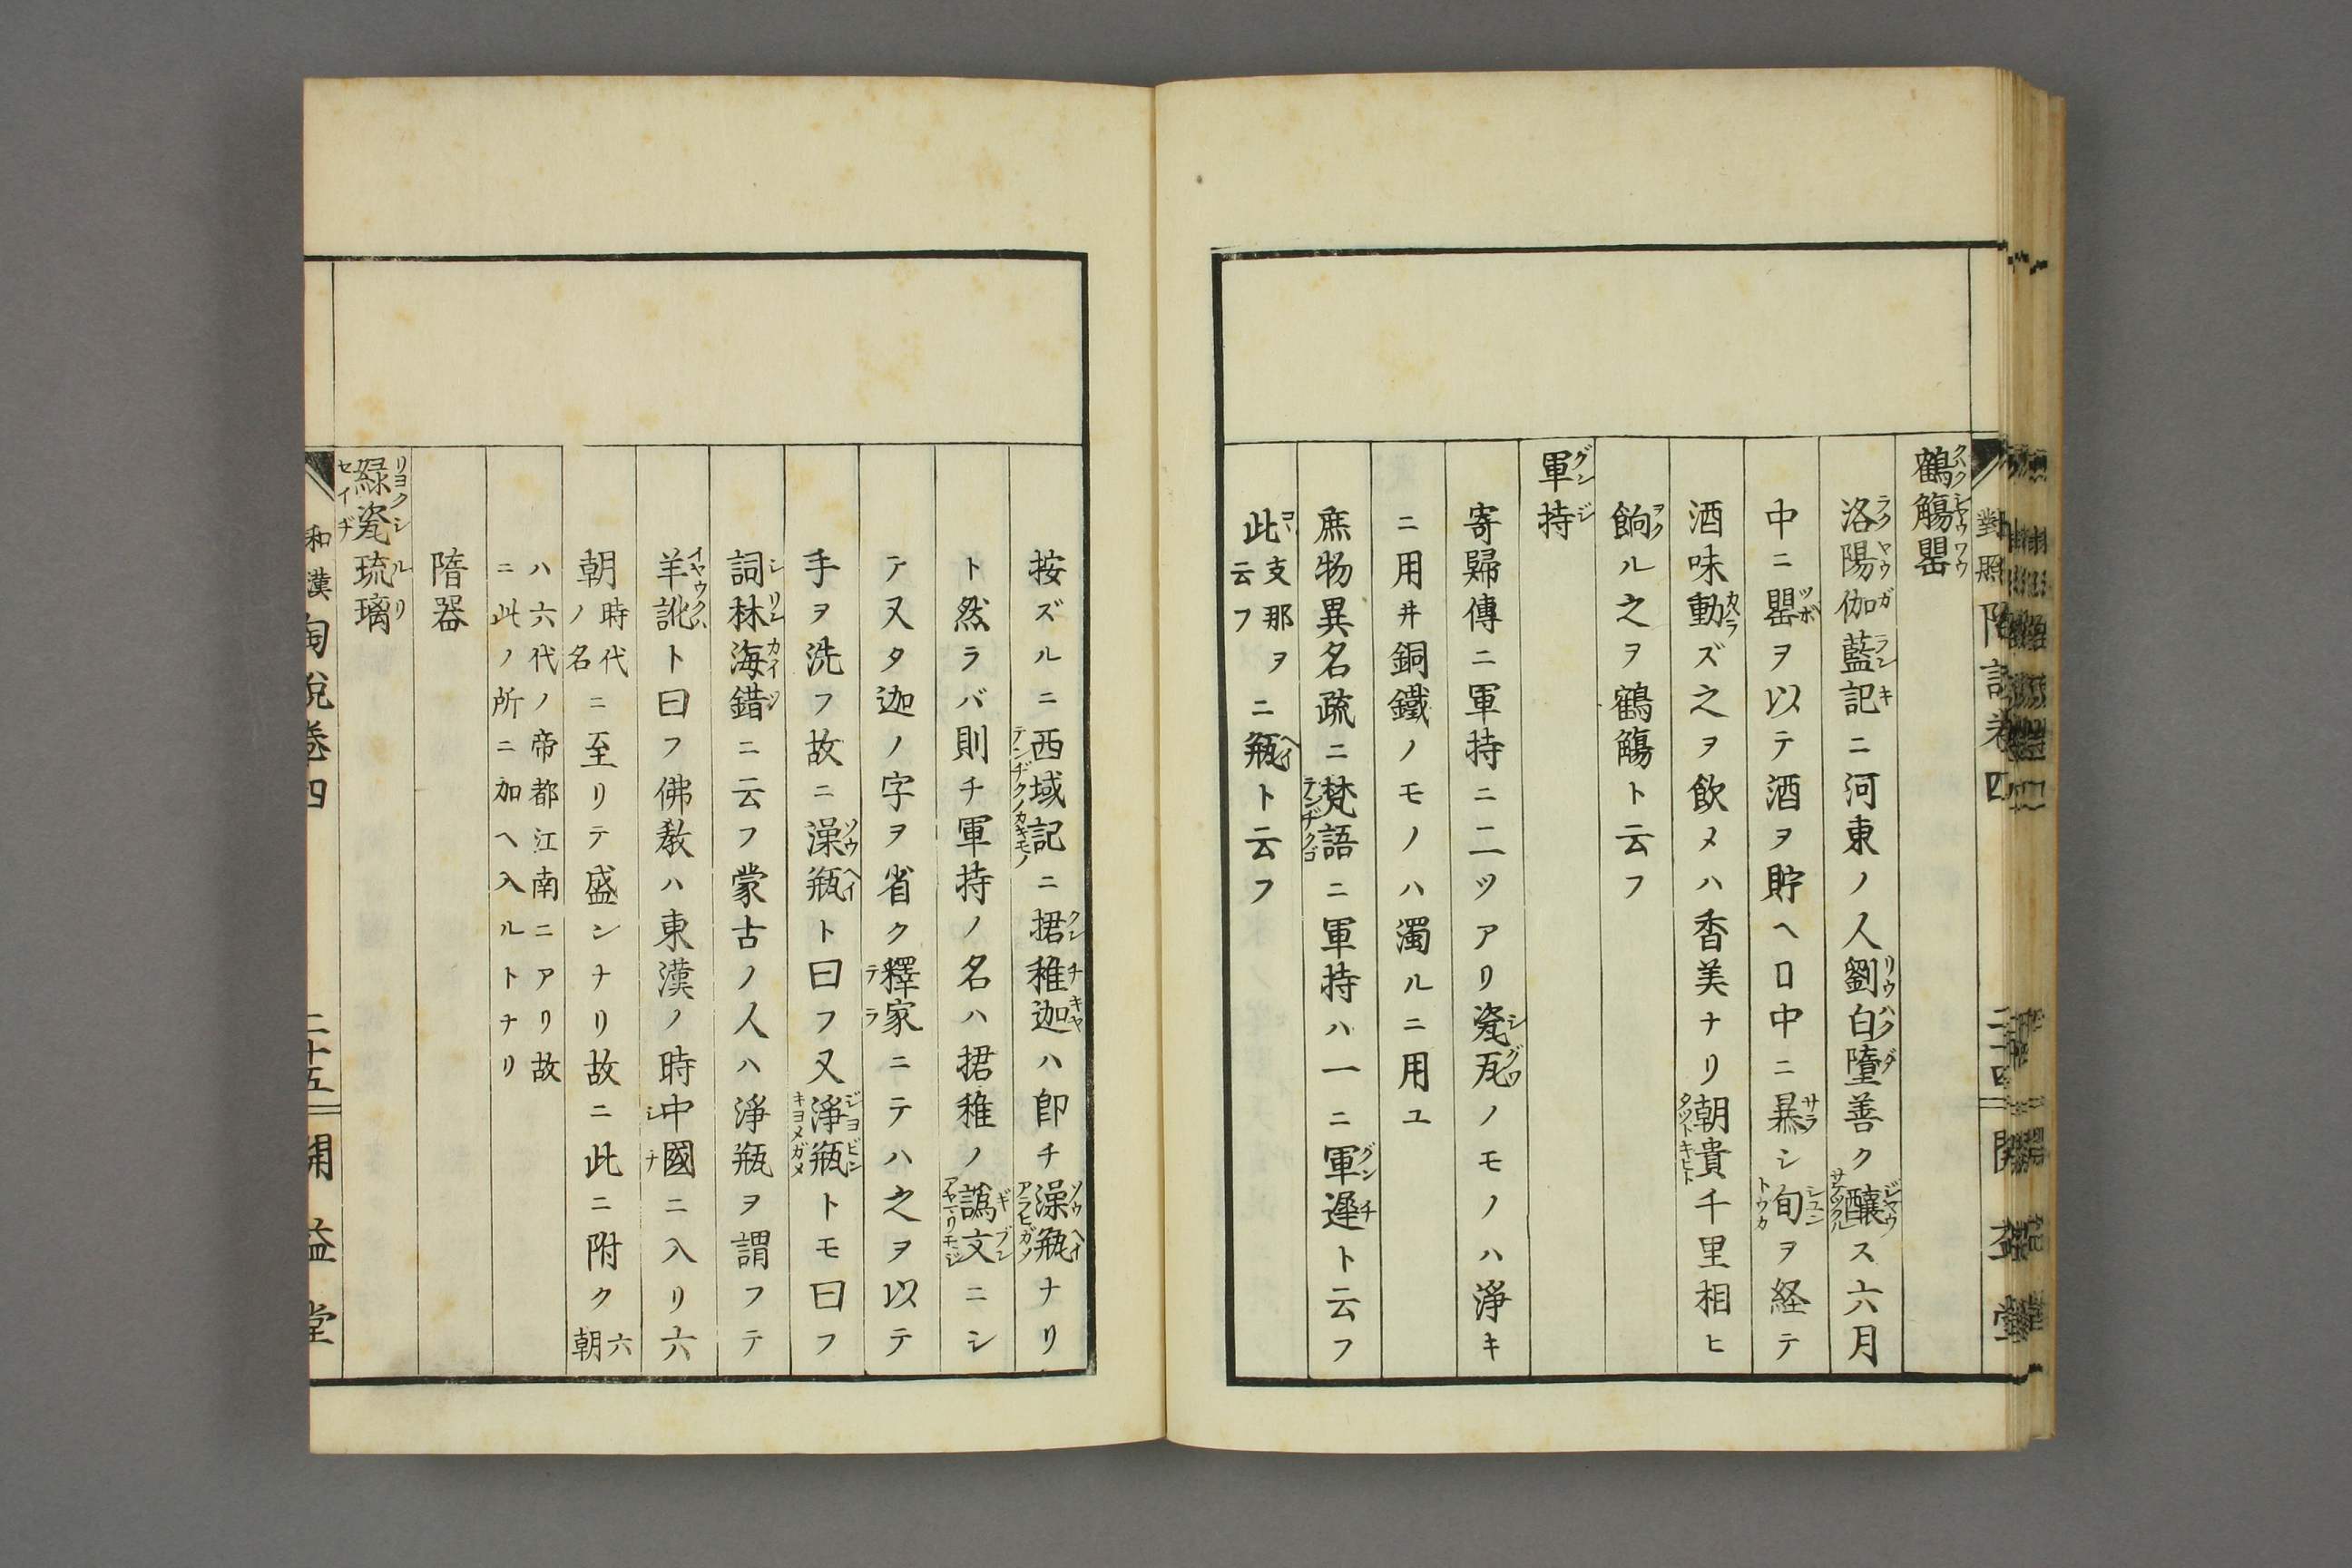 鶴觴罌
洛陽伽藍記ニ河東ノ人劉白墮善ク釀ス六月
中ニ罌ヲ以テ酒ヲ貯ヘ口中ニ暴シ旬ヲ経テ
酒味動ズ之ヲ飲メハ香美ナリ朝貴千里相ヒ
餉ル之ヲ鶴觴ト云フ
軍持
寄歸傳ニ軍持ニ二ツアリ瓷瓦ノモノハ淨キ
ニ用井銅鐵ノモノハ濁ルニ用ユ
庶物異名疏ニ梵語ニ軍持ハ一ニ軍遲ト云フ
此支那ヲ云フニ瓶ト云フ
按ズルニ西域記ニ捃稚迦ハ即チ澡瓶ナリ
ト然ラバ則チ軍持ノ名ハ捃稚ノ譌文ニシ
テ又タ迦ノ字ヲ省ク釋家ニテハ之ヲ以テ
手ヲ洗フ故ニ澡瓶ト曰フ又淨瓶トモ曰フ
詞林海錯ニ云フ蒙古ノ人ハ淨瓶ヲ謂フテ
羊訛ト曰フ佛敎ハ東漢ノ時中國ニ入リ六
朝時代ノ名ニ至リテ盛ンナリ故ニ此ニ附ク六朝
ハ六代ノ帝都江南ニアリ故
ニ此ノ所ニ加ヘ入ルトナリ
隋器
緑瓷琉璃
和漢陶說卷四 二十五 開益堂